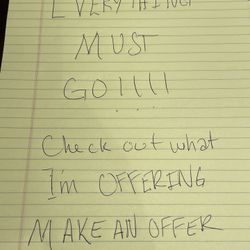 EVERYTHING
MUST
GO!!!!
Check out what
I'm OFFERING
MAKE AN OFFER